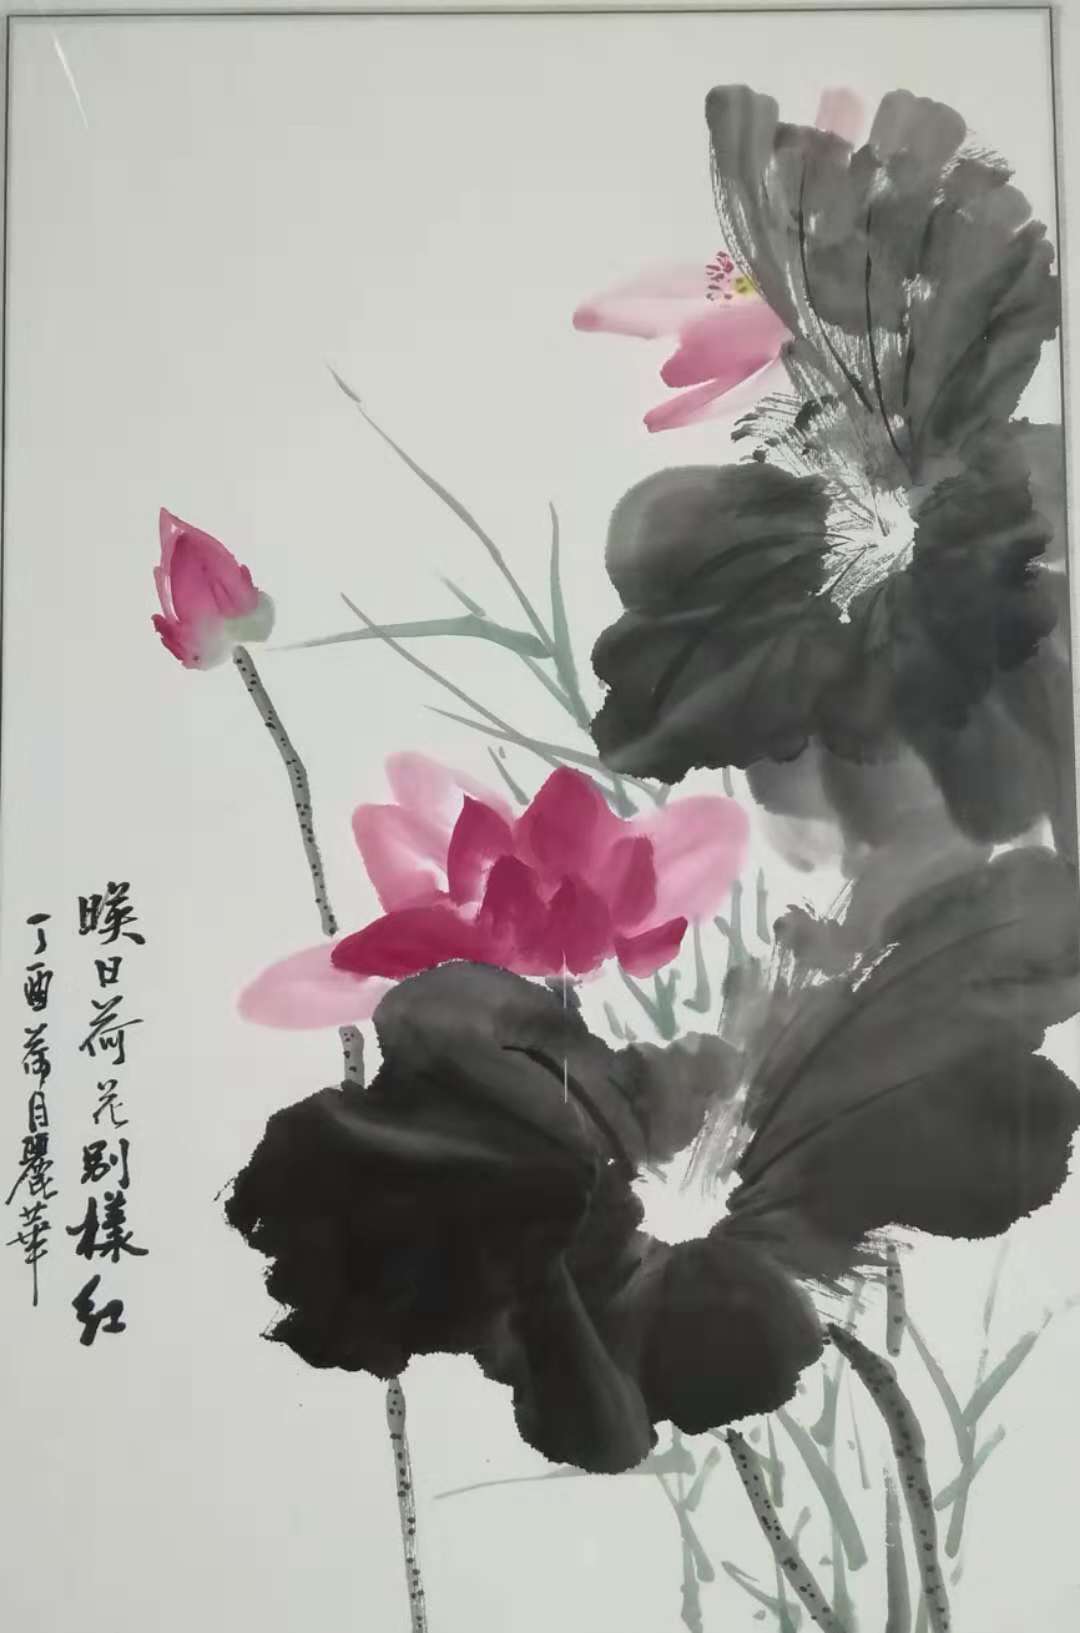 暎日荷花别樣红
丁酉荷月麗華